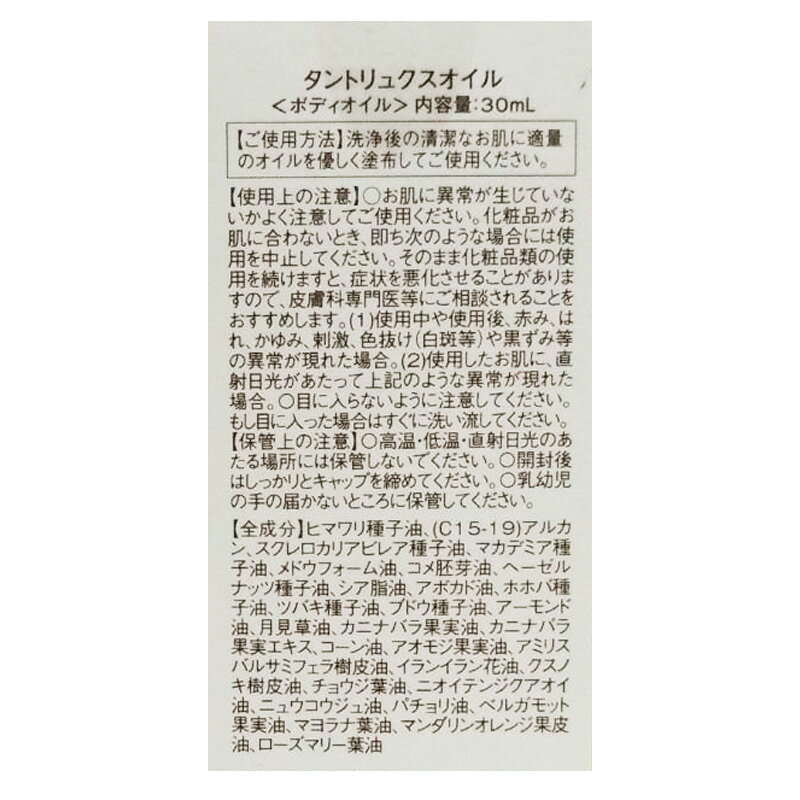 タントリュクスオイル
＜ボディオイル＞内容量:30mL
【ご使用方法】洗浄後の清潔なお肌に適量
のオイルを優しく塗布してご使用ください。
【使用上の注意】○お肌に異常が生じていな
いかよく注意してご使用ください。化粧品がお
肌に合わないとき、即ち次のような場合には使
用を中止してください。そのまま化粧品類の使
用を続けますと、症状を悪化させることがあり
ますので、皮膚科専門医等にご相談されることを
おすすめします。(1)使用中や使用後、赤み、は
れ、かゆみ、刺激、色抜け(白斑等)や黒ずみ等
の異常が現れた場合。(2)使用したお肌に、直
射日光があたって上記のような異常が現れた
場合。○目に入らないように注意してください。
もし目に入った場合はすぐに洗い流してください。
【保管上の注意】○高温・低温・直射日光のあ
たる場所には保管しないでください。○開封後
はしっかりとキャップを締めてください。○乳幼児
の手の届かないところに保管してください。
【全成分】ヒマワリ種子油、(C15-19)アルカ
ン、スクレロカリアビレア種子油、マカデミア種
子油、メドウフォーム油、コメ胚芽油、ヘーゼル
ナッツ種子油、シア脂油、アボカド油、ホホバ種
子油、ツバキ種子油、ブドウ種子油、アーモンド
油、月見草油、カニナバラ果実油、カニナバラ
果実エキス、コーン油、アオモジ果実油、アミリス
バルサミフェラ樹皮油、イランイラン花油、クスノ
キ樹皮油、チョウジ葉油、ニオイテンジクアオイ
油、ニュウコウジュ油、パチョリ油、ベルガモット
果実油、マヨラナ葉油、マンダリンオレンジ果皮
油、ローズマリー葉油